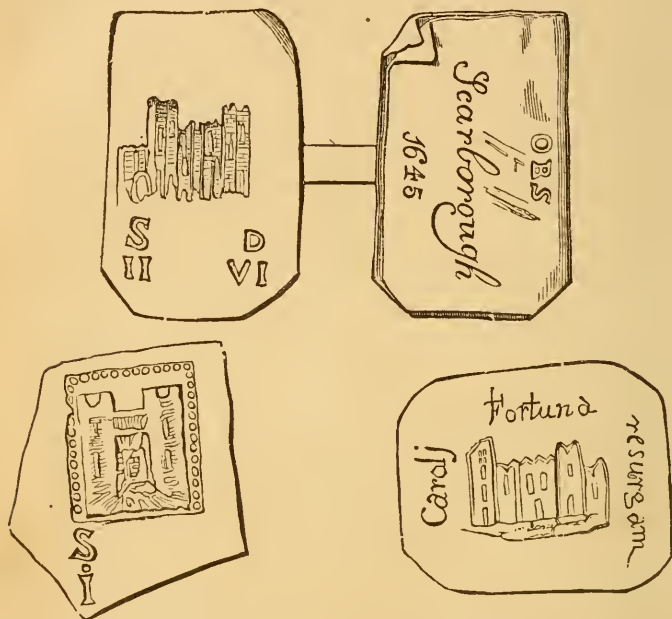 S D
II VI
OBS
Scarborough
1645
S·I
Carolj
Fortuna
resurgam